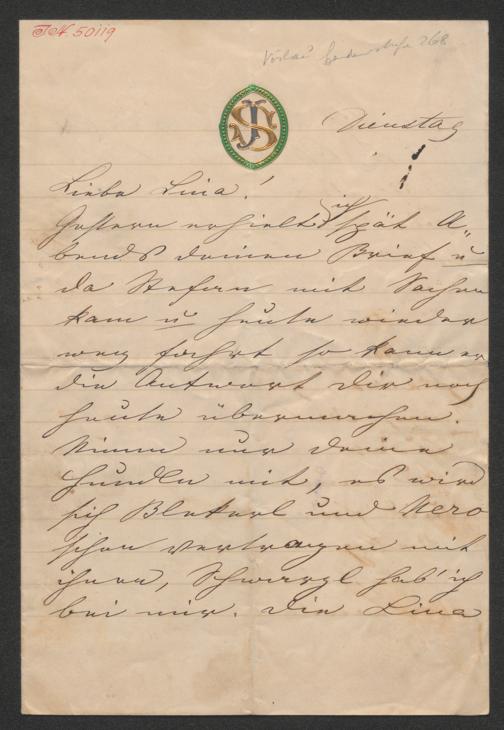 J.N. 50119
Vöslau
268
JS
Dienstag
Liebe Lina!
Gestern erhielt ich spät A„
bends deinen Brief u
da Stefan mit Sachen
kam u heute wieder
weg fährt so kann er
die Antwort dir noch
heute übermachen.
Nimm nur deine
Hundln mit, es wird
sich Blekerl und Nero
schon vertragen mit
ihnen, Schwarzl hab' ich
bei mir. Die Lina